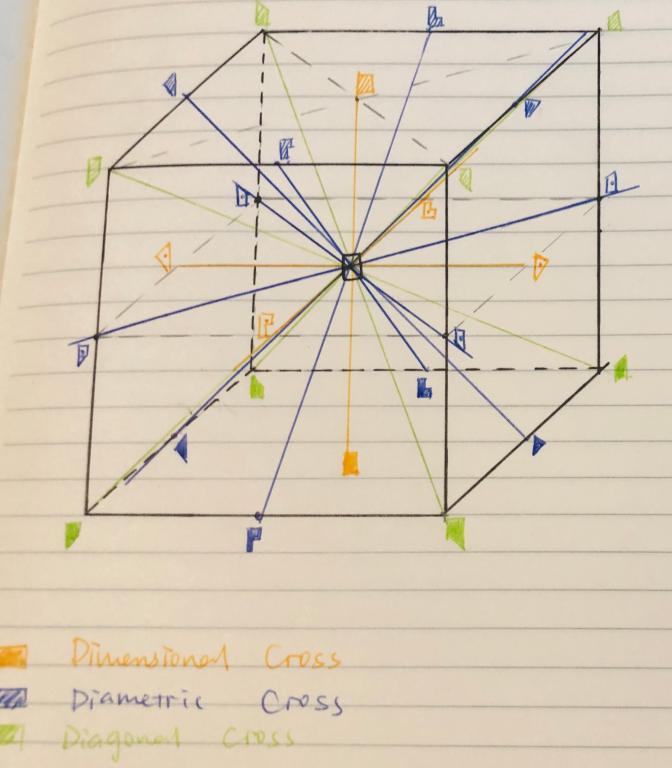 Dimensional Cross
Diametric Cross
Diagonal Cross